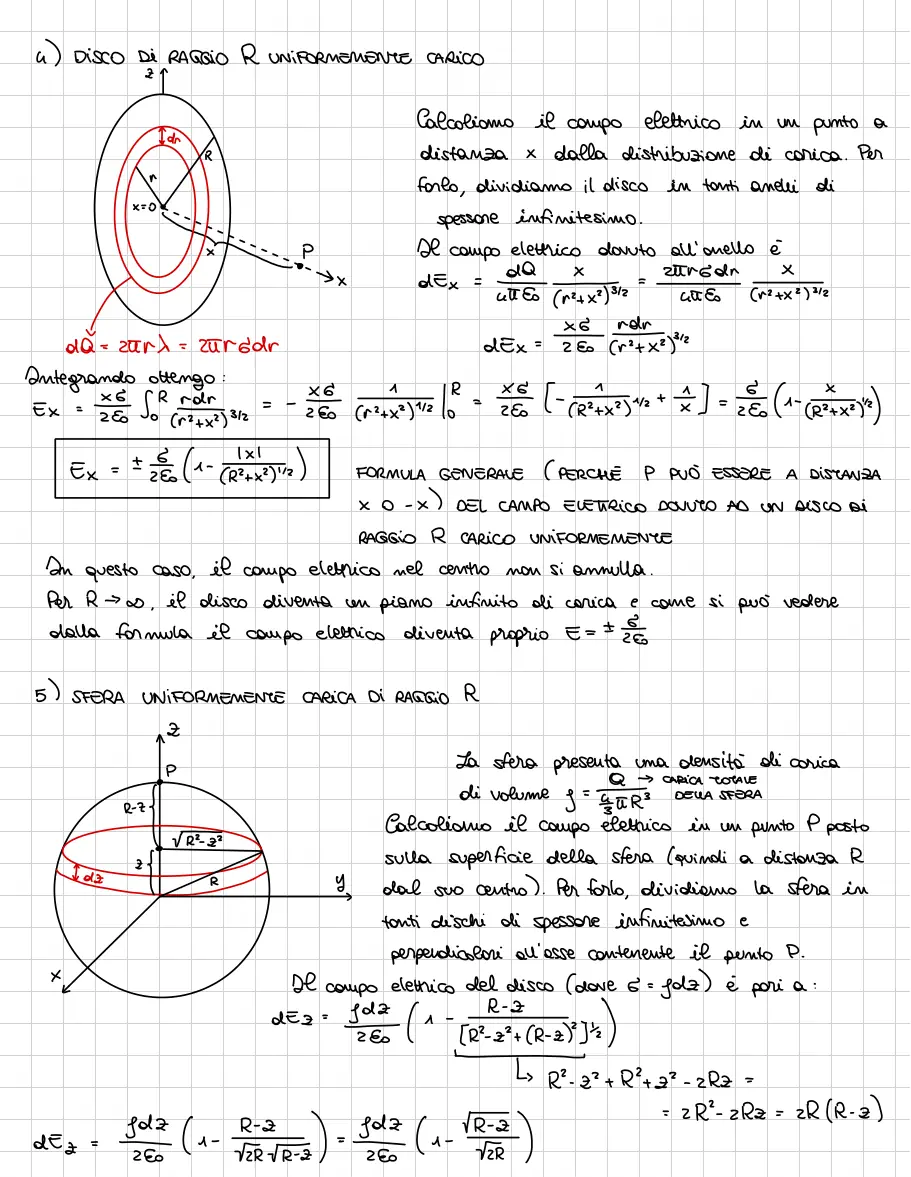 4) DISCO DI RAGGIO R UNIFORMEMENTE CARICO
z
dr
R
r
x=0
x
P
x
dQ = 2πrλ = 2πrσdr
Calcoliamo il campo elettrico in un punto a
distanza x dalla distribuzione di carica. Per
farlo, dividiamo il disco in tanti anelli di
spessore infinitesimo.
Il campo elettrico dovuto all'anello è
dEx = dQ/(4πε₀) x/(r²+x²)^(3/2) = 2πrσdr/(4πε₀) x/(r²+x²)^(3/2)
dEx = xσ/(2ε₀) rdr/(r²+x²)^(3/2)
Integrando ottengo:
Ex = xσ/(2ε₀) ∫₀^R rdr/(r²+x²)^(3/2) = - xσ/(2ε₀) 1/(r²+x²)^(1/2) |₀^R = xσ/(2ε₀) [-1/(R²+x²)^(1/2) + 1/x] = σ/(2ε₀) (1 - x/(R²+x²)^(1/2))
Ex = ± σ/(2ε₀) (1 - |x|/(R²+x²)^(1/2))
FORMULA GENERALE (PERCHÉ P PUÒ ESSERE A DISTANZA
x O -x) DEL CAMPO ELETTRICO DOVUTO AD UN DISCO DI
RAGGIO R CARICO UNIFORMEMENTE
In questo caso, il campo elettrico nel centro non si annulla.
Per R→∞, il disco diventa un piano infinito di carica e come si può vedere
dalla formula il campo elettrico diventa proprio E = ± σ/(2ε₀)
5) SFERA UNIFORMEMENTE CARICA DI RAGGIO R
z
P
R-z
√(R²-z²)
z
dz
R
y
x
La sfera presenta una densità di carica
di volume ρ = Q/(4/3 πR³) → CARICA TOTALE DELLA SFERA
Calcoliamo il campo elettrico in un punto P posto
sulla superficie della sfera (quindi a distanza R
dal suo centro). Per farlo, dividiamo la sfera in
tanti dischi di spessore infinitesimo e
perpendicolari all'asse contenente il punto P.
Il campo elettrico del disco (dove σ = ρdz) è pari a:
dEz = ρdz/(2ε₀) (1 - (R-z)/[R²-z²+(R-z)²]^(1/2))
↳ R²-z²+R²+z²-2Rz =
= 2R²-2Rz = 2R(R-z)
dEz = ρdz/(2ε₀) (1 - (R-z)/(√2R √R-z)) = ρdz/(2ε₀) (1 - √R-z/√2R)